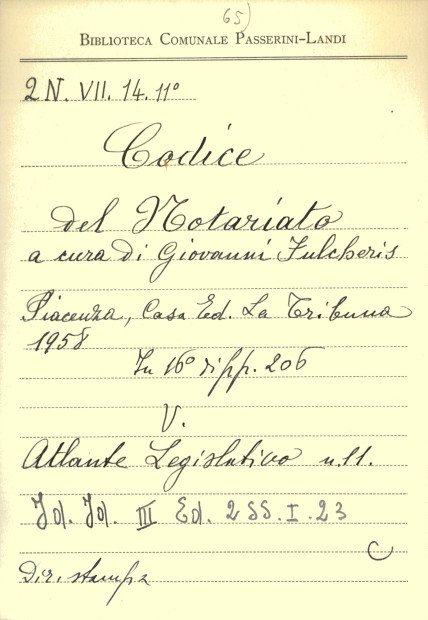 65)
BIBLIOTECA COMUNALE PASSERINI-LANDI
2 N. VII. 14. 11°
Codice
del Notariato
a cura di Giovanni Fulcheris
Piacenza, Casa Ed. La Tribuna
1958
In 16° di pp. 206
V.
Atlante Legislativo n. 11.
Id. Id. III Ed. 2 SS. I. 23
C
Dir. stampa